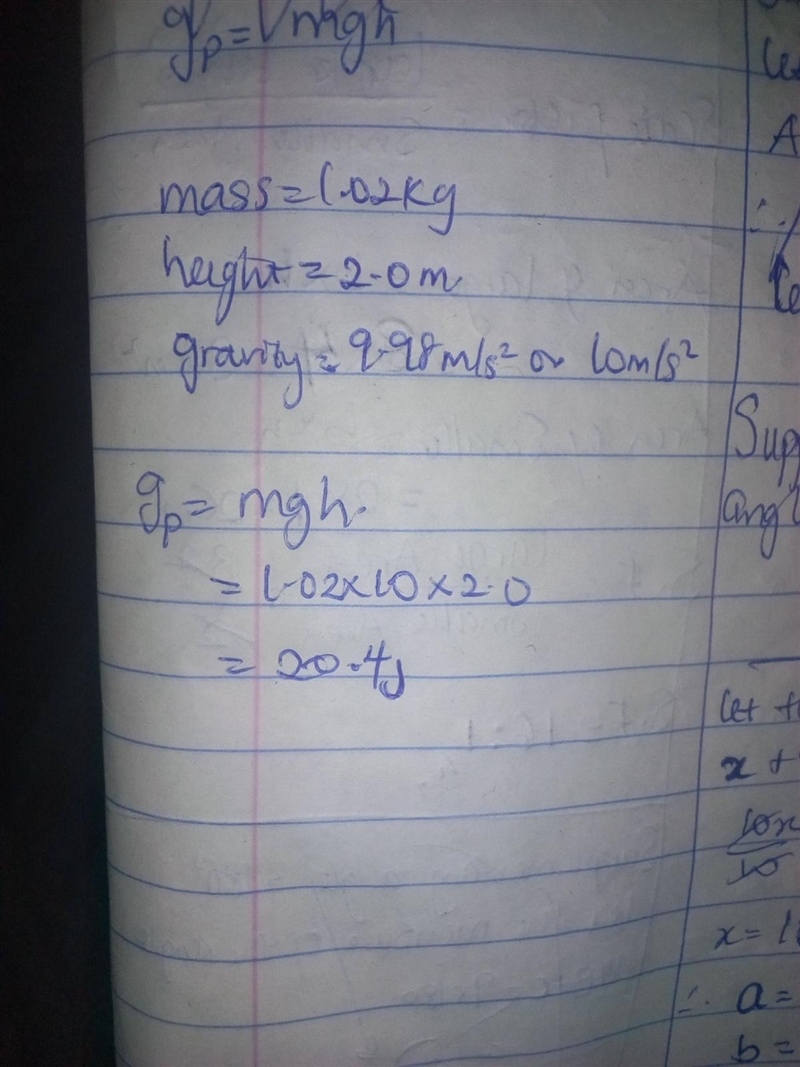 gp = √mgh
mass = 1.02kg
height = 2.0m
gravity = 9.98m/s² or 10m/s²
gp = mgh.
= 1.02x10x2.0
= 20.4J
A
∴
Sup
angl
let
x +
10x
10
x = 1
∴ a =
b =